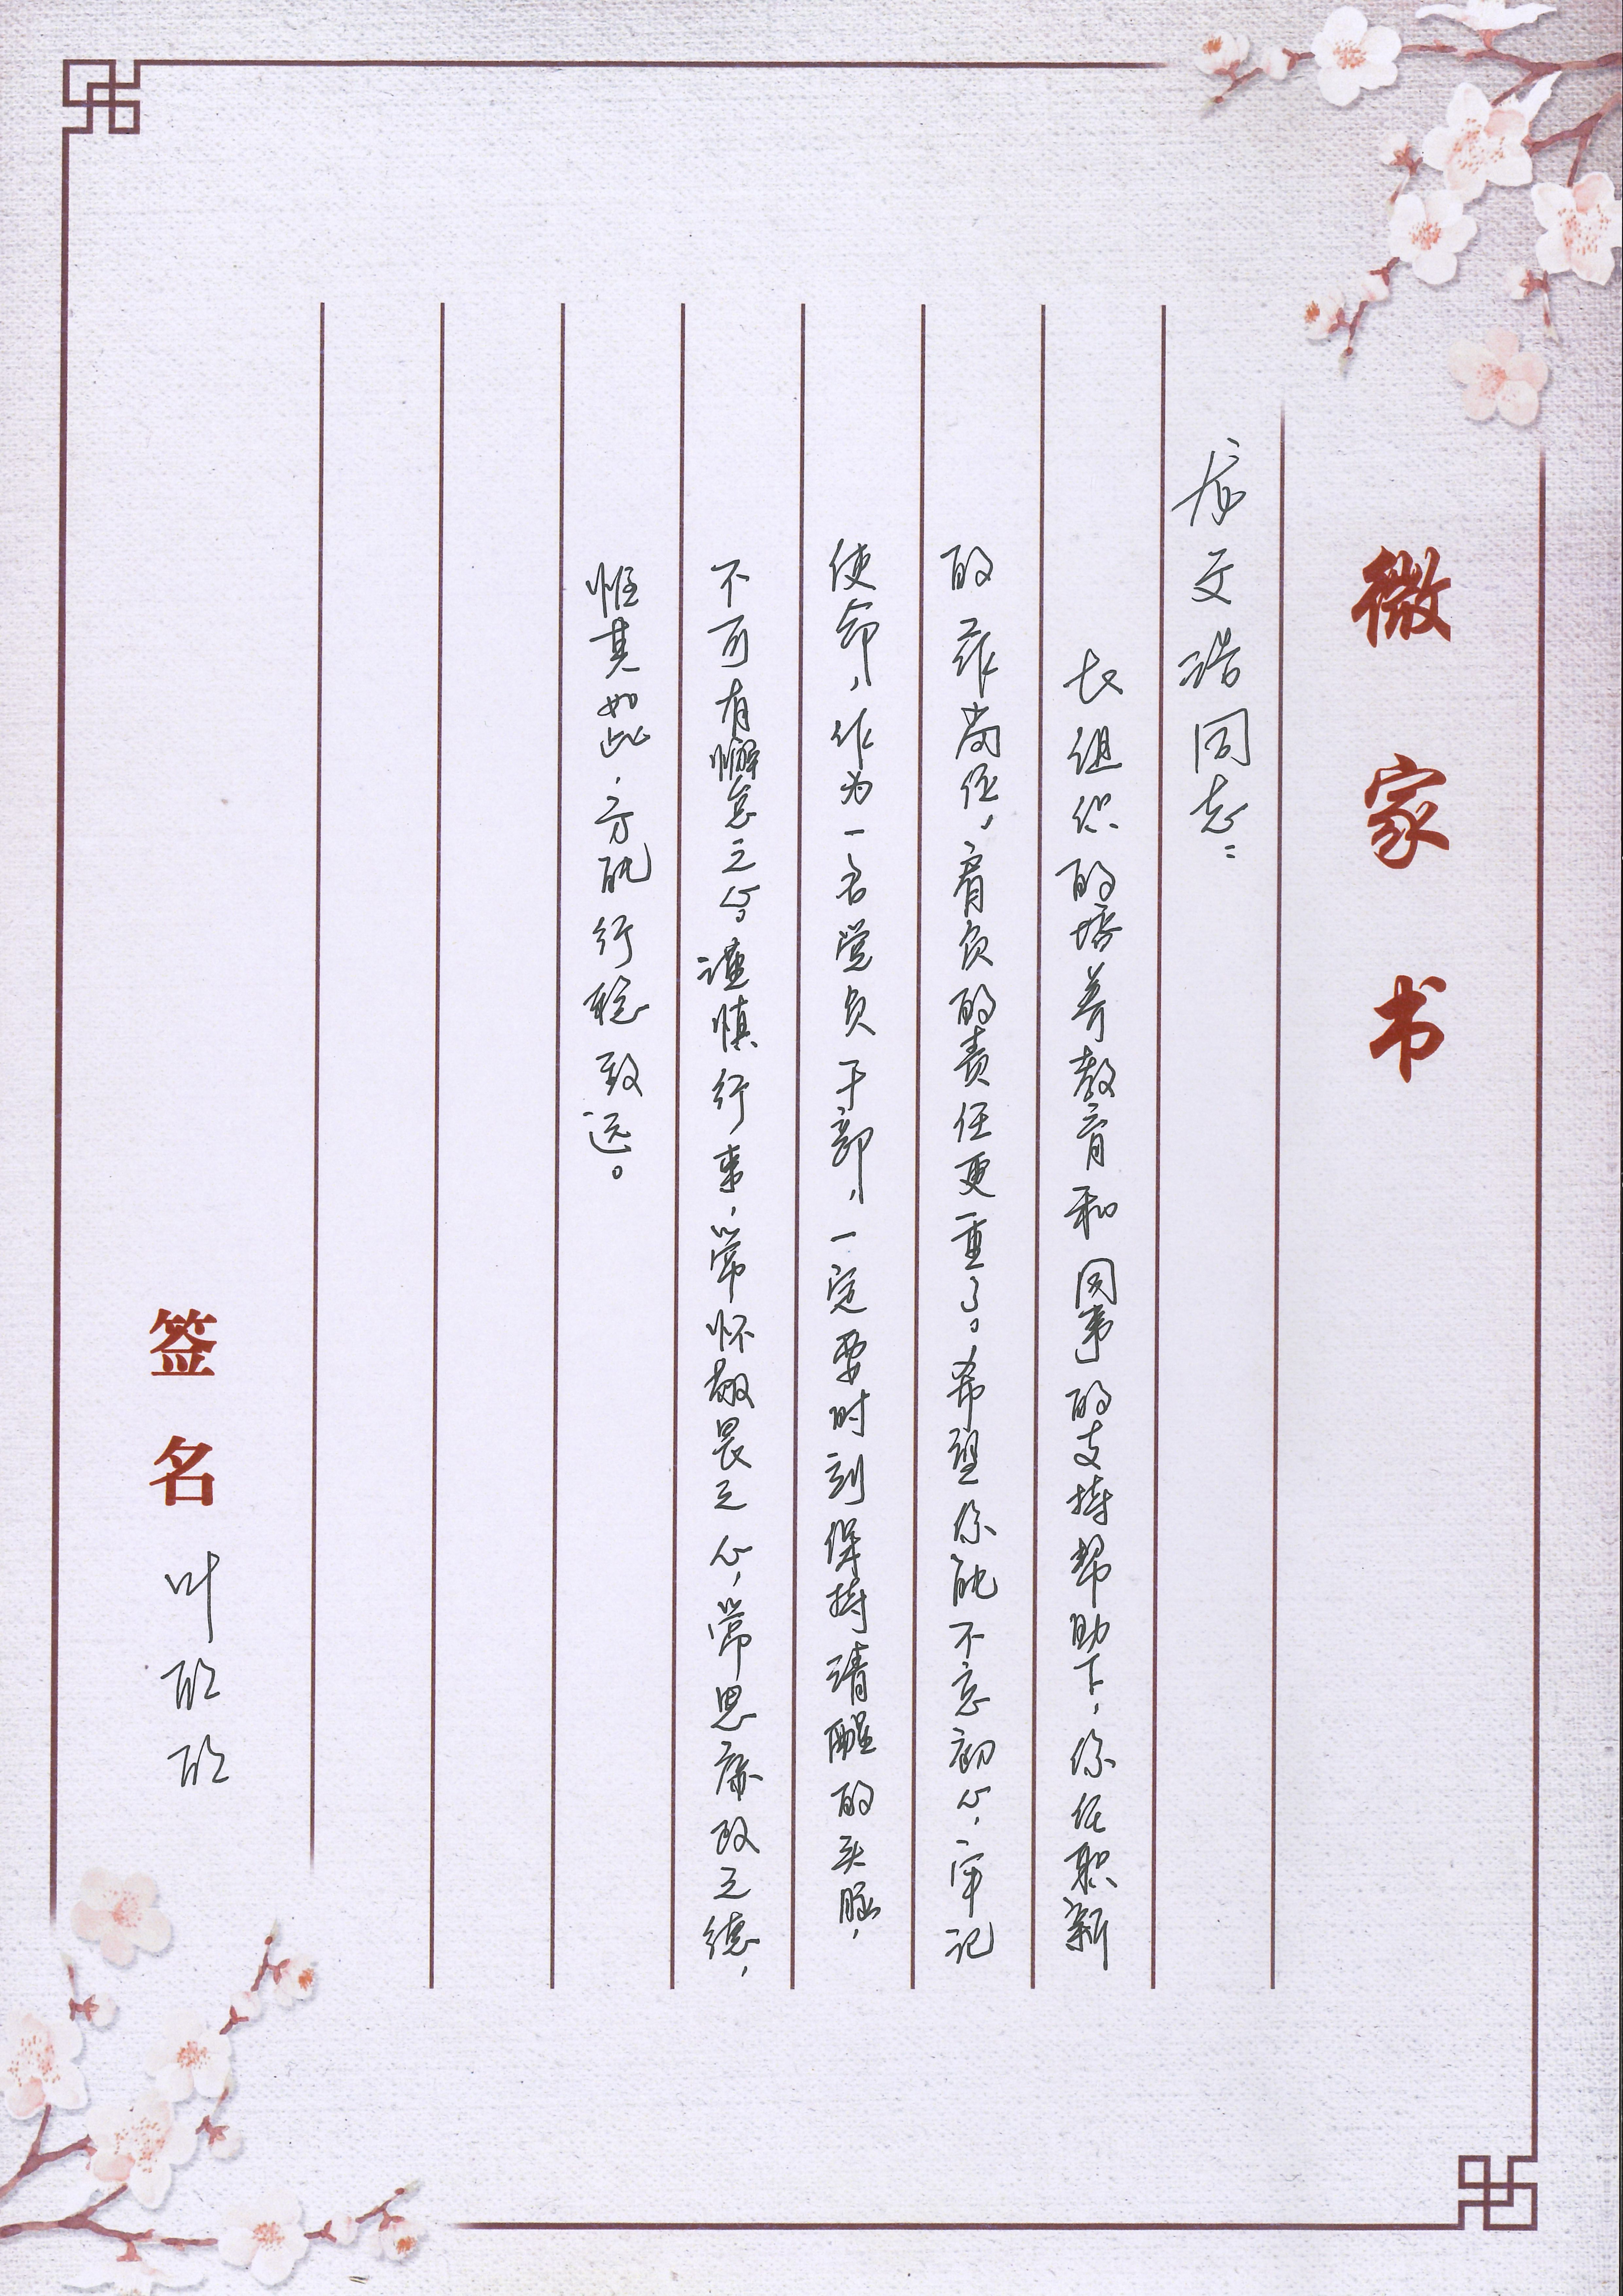 微家书
文浩同志：
在组织的培养教育和同事的支持帮助下，你任职新
的工作岗位，肩负的责任更重了。希望你能不忘初心，牢记
使命，作为一名党员干部，一定要时刻保持清醒的头脑，
不可有懈怠之心。谨慎行事，常怀敬畏之心，常思廉政之德，
惟其如此，方能行稳致远。
签名 叶